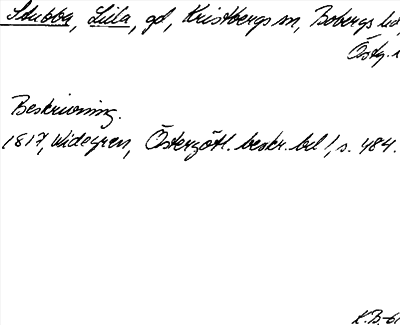 Stubba, Lilla, gd, Kristbergs sn, Bobergs hd,
Östg. l
Beskrivning.
1817, Widegren, Östergötl. beskr. bd 1, s. 484.
K.B-61